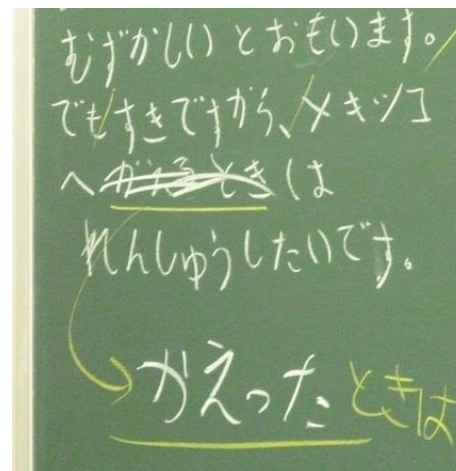 むずかしいとおもいます。
でもすきですから、メキツコ
へ は
れんしゅうしたいです。
かえった ときは